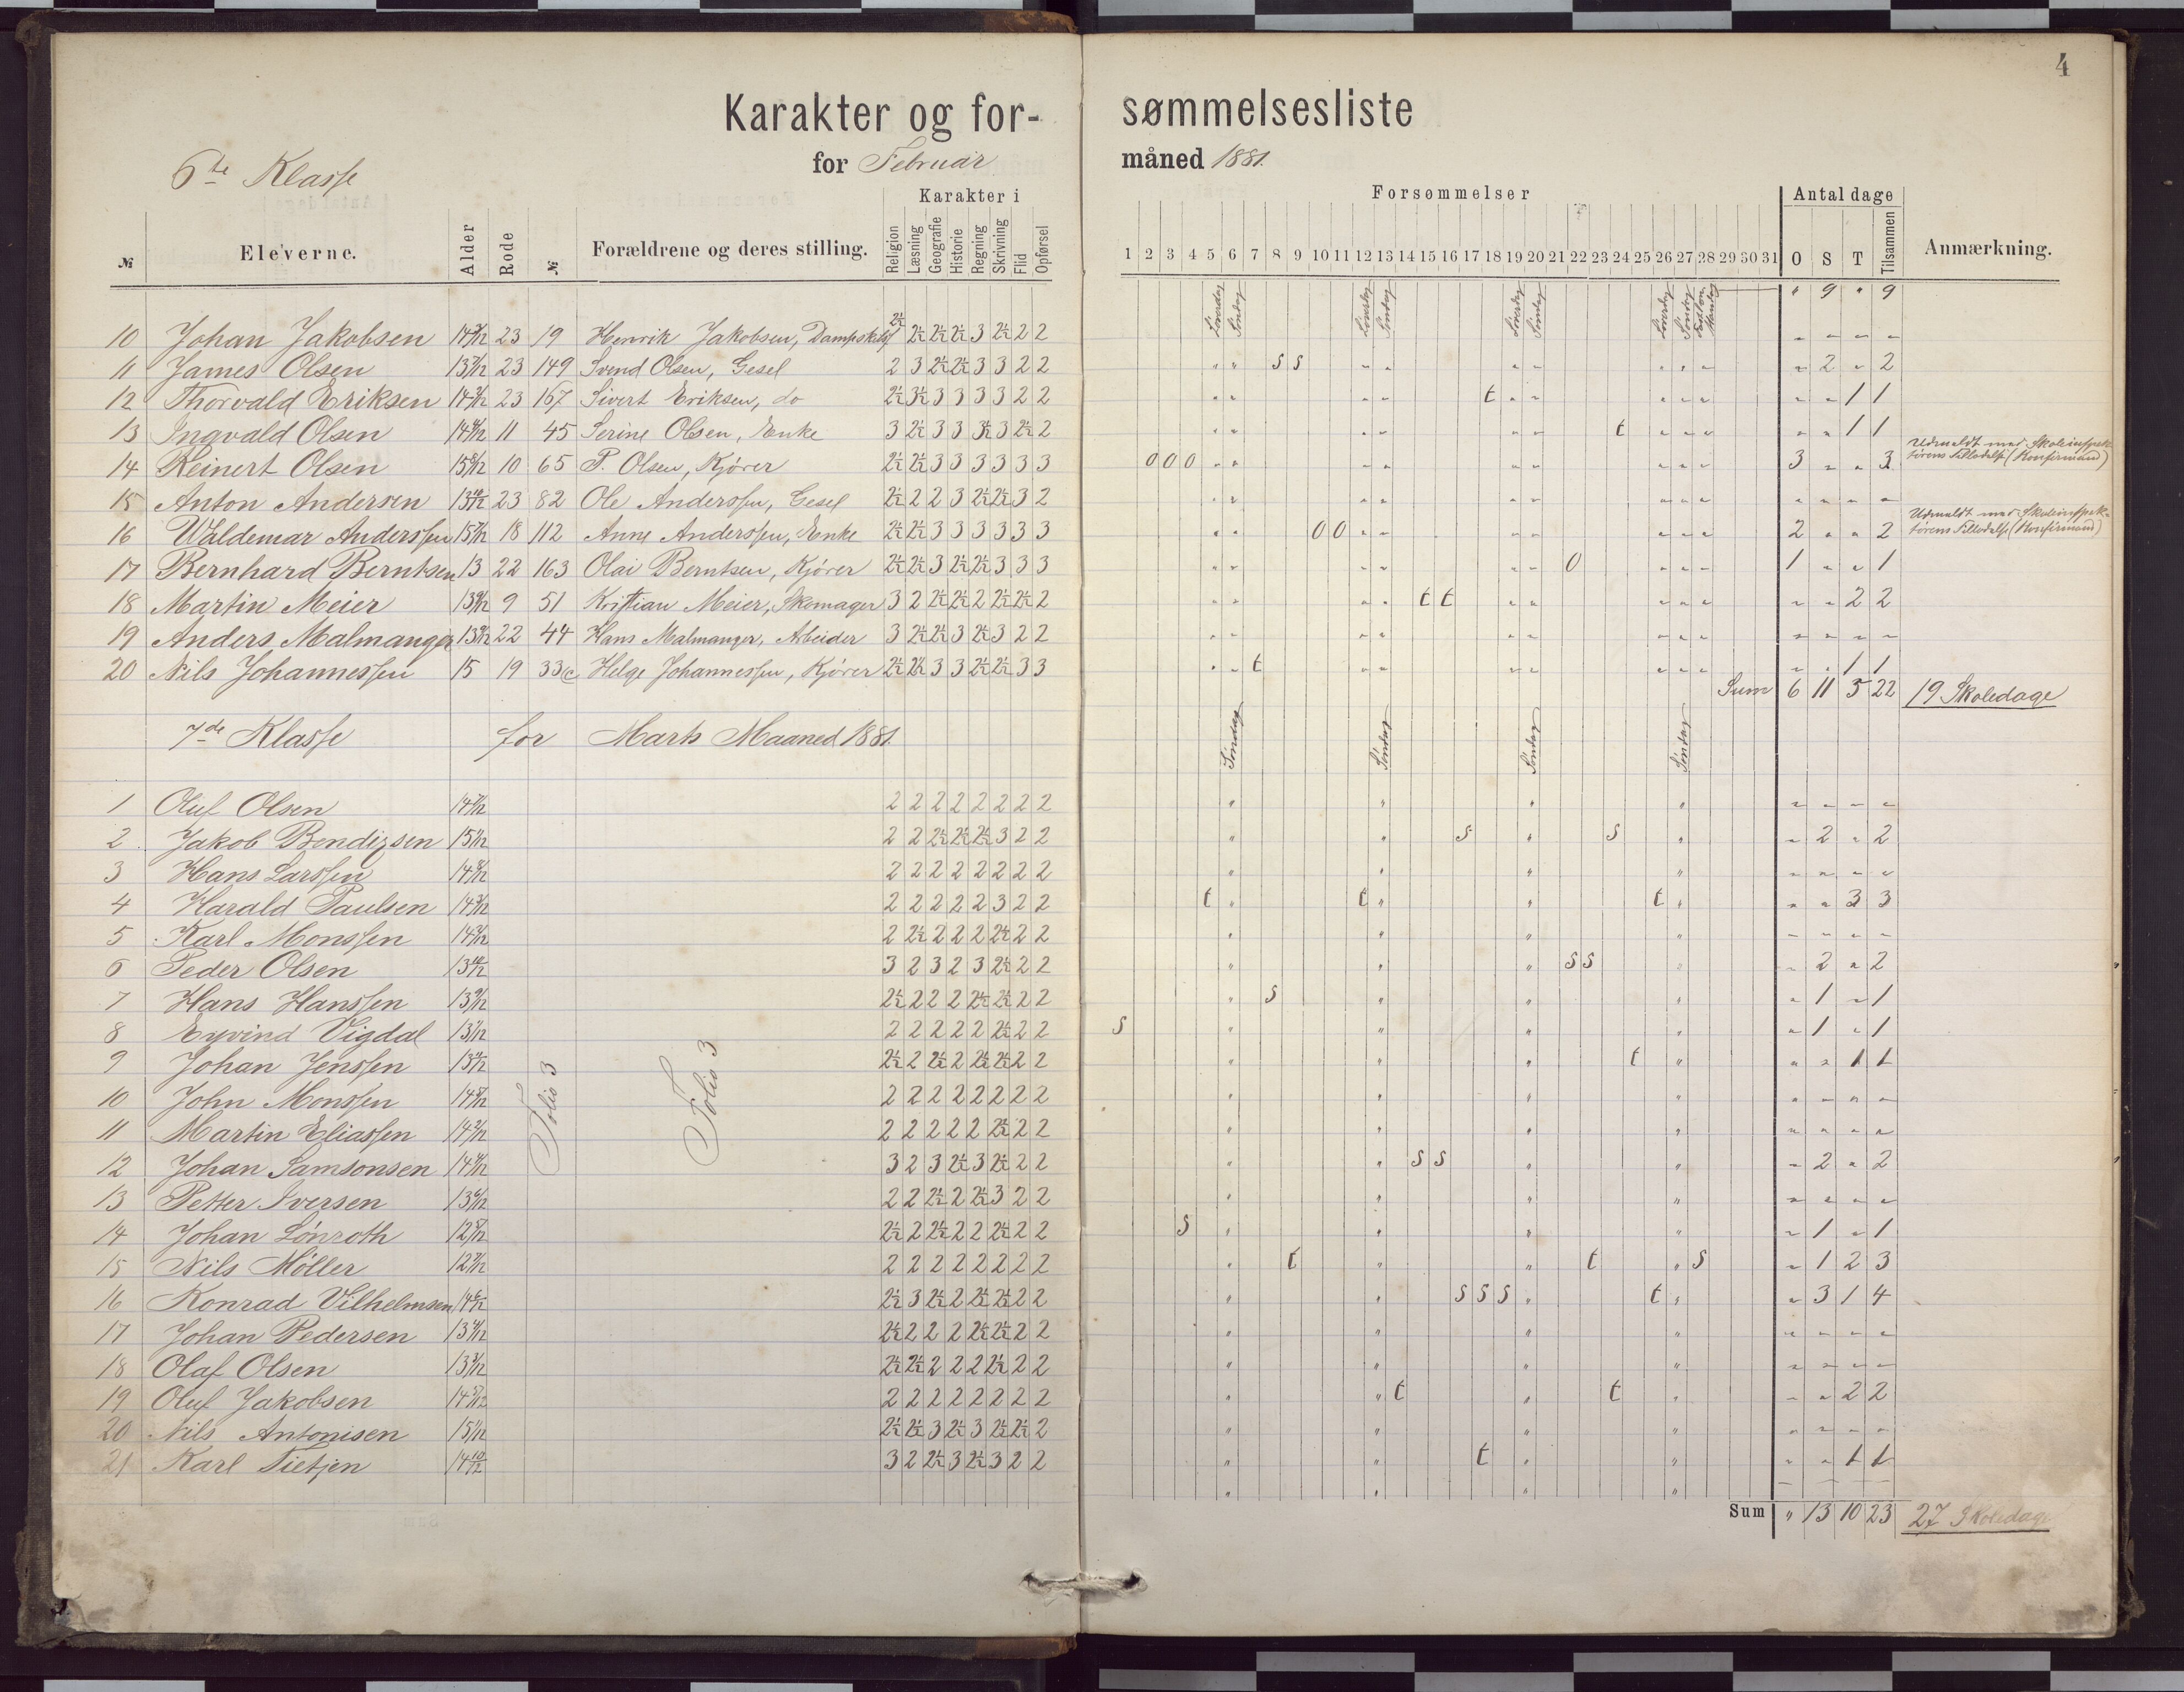 4
Karakter og for- sømmelsesliste
6te Klasse for Februar måned 1881.
Karakter i Forsømmelser Antal dage
№ Eleverne. Alder Rode № Forældrene og deres stilling. Religion Læsning Geografie Historie Regning Skrivning Flid Opførsel 1 2 3 4 5 6 7 8 9 10 11 12 13 14 15 16 17 18 19 20 21 22 23 24 25 26 27 28 29 30 31 O S T Tilsammen Anmærkning.
Løverdag Søndag Løverdag Søndag Løverdag Søndag Løverdag Søndag Mandag " 9 " 9
10 Johan Jakobsen 23 19 Henrik Jakobsen, 2½ 2½ 2½ 2½ 3 2½ 2 2 " " " "
11 James Olsen 23 149 Svend Olsen, Gesel 2 3 2½ 2½ 3 3 2 2 S S " 2 " 2
12 Thorvald Eriksen 23 167 Sivert Eriksen, do 2½ 3½ 3 3 3 3 2 2 t " " 1 1
13 Ingvald Olsen 11 45 Serine Olsen, Enke 3 2½ 3 3 3½ 3 2½ 2 t " " 1 1
14 Reinert Olsen 10 65 P. Olsen, Kjører 2½ 2½ 3 3 3 3 3 3 0 0 0 3 " " 3 Udmeldt med Skoleinspek-
tørens Tilladelse (Konfirmand)
15 Anton Andersen 23 82 Ole Anderssen, Gesel 2½ 2 2 3 2½ 2½ 3 2 " " " "
16 Waldemar Anderssen 18 112 Anne Anderssen, Enke 2½ 2½ 3 3 3 3 3 3 0 0 2 " " 2 Udmeldt med Skoleinspek-
tørens Tilladelse (Konfirmand)
17 Bernhard Berntsen 13 22 163 Olai Berntsen, Kjører 2½ 2½ 3 2½ 2½ 3 3 3 0 1 " " 1
18 Martin Meier 9 51 Kristian Meier, Skomager 3 2 2½ 2½ 2 2½ 2½ 2 t t " " 2 2
19 Anders Malmanger 22 44 Hans Malmanger, Arbeider 3 2½ 2½ 3 2½ 3 2 2 " " " "
20 Nils Johannessen 15 19 33c Helge Johannessen, Kjører 2½ 2½ 3 3 2½ 2½ 3 3 t " " 1 1
Sum 6 11 5 22 19 Skoledage
7de Klasse for Marts Maaned 1881. Søndag Søndag Søndag Søndag
1 Oluf Olsen 2 2 2 2 2 2 2 2 " " " "
2 Jakob Bendixsen 2 2 2½ 2½ 2½ 3 2 2 S S " 2 " 2
3 Hans Larssen 2 2 2 2 2 2 2 2 " " " "
4 Harald Paulsen 2 2 2 2 2 3 2 2 t t t " " 3 3
5 Karl Monssen 2 2½ 2 2 2 2½ 2 2 " " " "
6 Peder Olsen 3 2 3 2 3 2½ 2 2 S S " 2 " 2
7 Hans Hanssen 2½ 2 2 2 2½ 2½ 2 2 S " 1 " 1
8 Eyvind Vigdal 2 2 2 2 2 2½ 2 2 S " 1 " 1
9 Johan Jenssen 2½ 2 2½ 2 2½ 2½ 2 2 t " " 1 1
10 John Monssen 2 2 2 2 2 2 2 2 " " " "
11 Martin Eliassen 2 2 2 2 2 2½ 2 2 " " " "
12 Johan Samsonsen 3 2 3 2½ 3 2½ 2 2 S S " 2 " 2
13 Petter Iversen 2 2 2½ 2 2½ 3 2 2 " " " "
14 Johan Lönroth 2½ 2 2½ 2 2 2½ 2 2 S " 1 " 1
15 Nils Möller 2 2 2 2 2 2 2 2 t t S " 1 2 3
16 Konrad Vilhelmsen 2½ 3 2½ 2 2½ 2½ 2 2 S S S t " 3 1 4
17 Johan Pedersen 2½ 2 2 2 2½ 2½ 2 2 " " " "
18 Olaf Olsen 2½ 2½ 2 2 2 2½ 2 2 " " " "
19 Oluf Jakobsen 2 2 2 2 2 2 2 2 t t " " 2 2
20 Nils Antonisen 2½ 2½ 3 2½ 3 2½ 2½ 2 " " " "
21 Karl Tietjen 14 10/12 3 2 2½ 3 2½ 3 2 2 t " " 1 1
Folio 3 Folio 3
Sum " 13 10 23 27 Skoledage